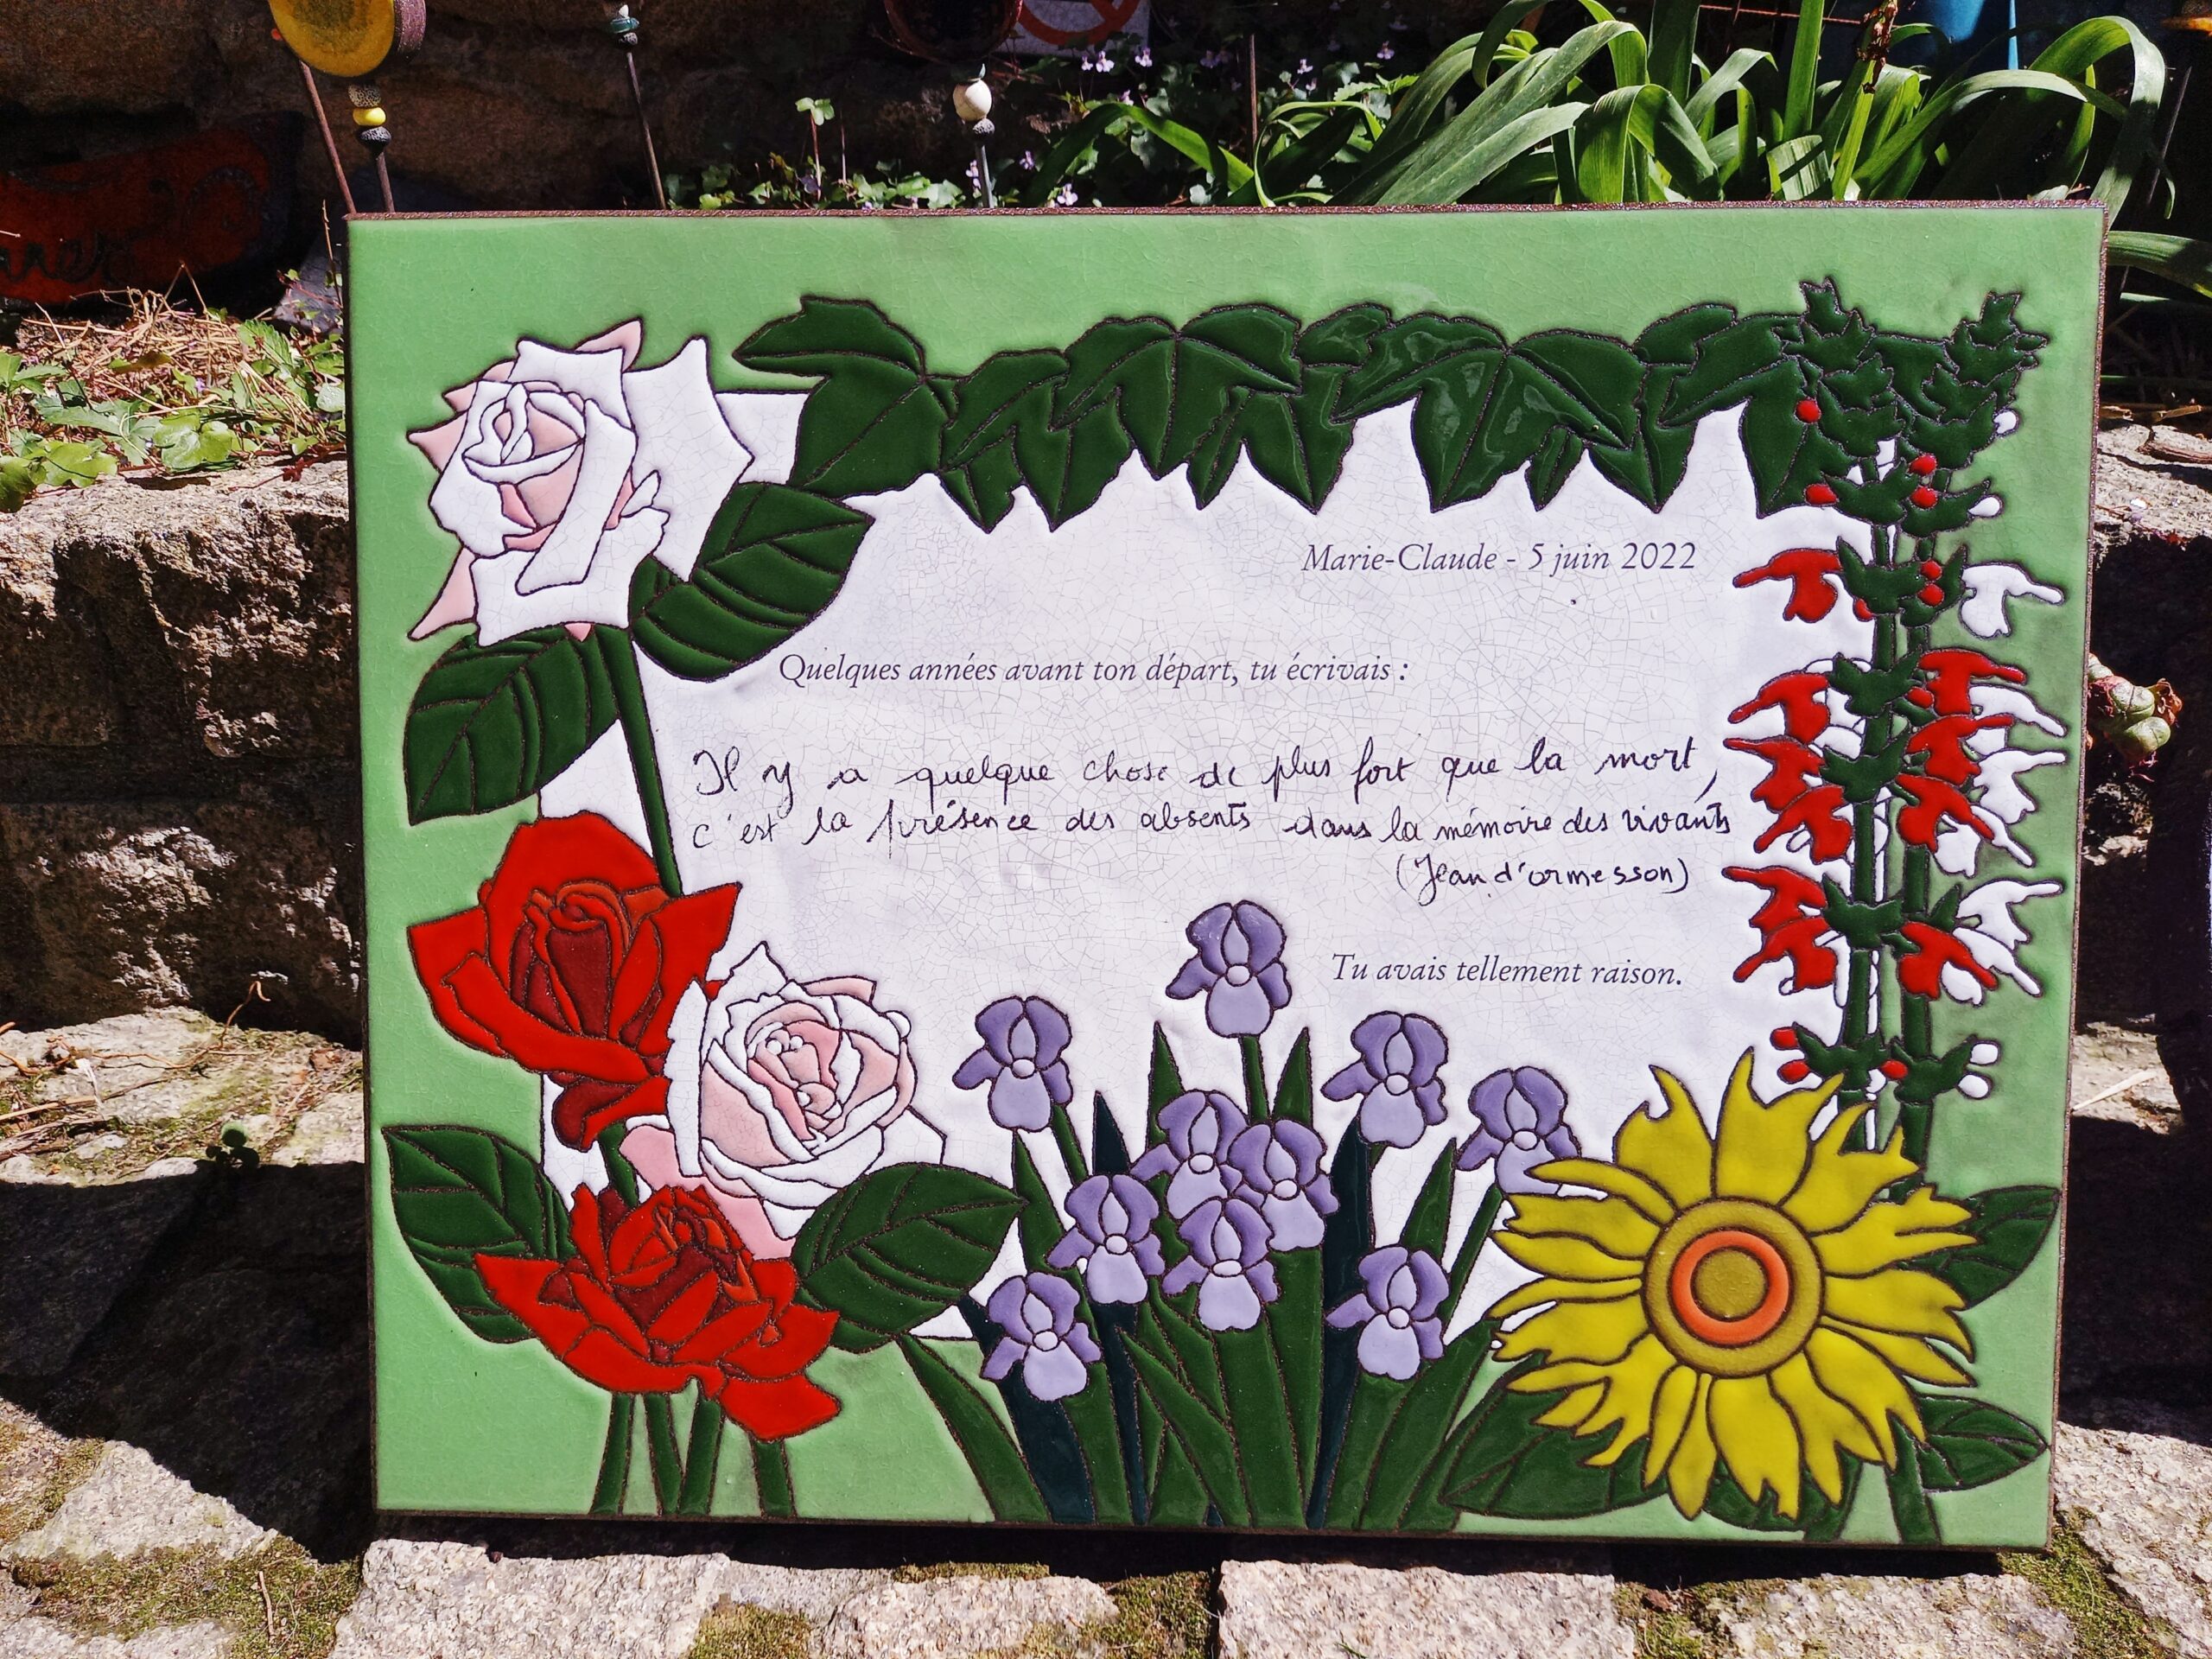 Marie-Claude - 5 juin 2022
Quelques années avant ton départ, tu écrivais :
Il y a quelque chose de plus fort que la mort,
c'est la présence des absents dans la mémoire des vivants
(Jean d'ormesson)
Tu avais tellement raison.